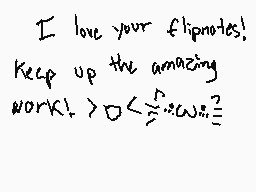 I love your flipnotes!
Keep up the amazing
work! >o<